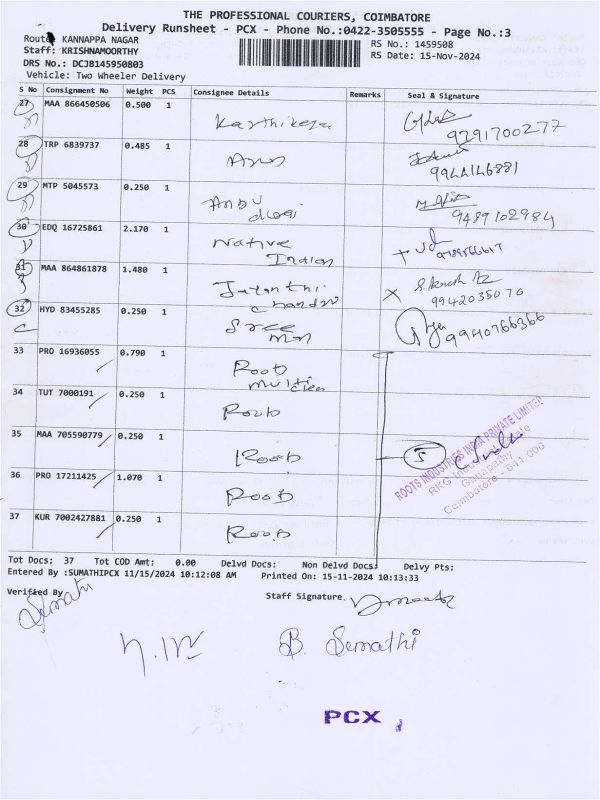 THE PROFESSIONAL COURIERS, COIMBATORE
Delivery Runsheet - PCX - Phone No.:0422-3505555 - Page No.:3
Route: KANNAPPA NAGAR
RS No.: 1459508
Staff: KRISHNAMOORTHY
RS Date: 15-Nov-2024
DRS No.: DCJB145950803
Vehicle: Two Wheeler Delivery
S No Consignment No Weight PCS Consignee Details Remarks Seal & Signature
27 MAA 866450506 0.500 1 Karthikeyan
9291700277
28 TRP 6839737 0.485 1 Arun
9944146881
29 MTP 5045573 0.250 1 Anbu
9489102984
30 EDQ 16725861 2.170 1 Native
Indian
31 MAA 864861878 1.480 1 Jayanthi
9942035070
32 HYD 83455285 0.250 1 Sree
9940766366
33 PRO 16936055 0.790 1 Roots
multi clean
34 TUT 7000191 0.250 1 Roots
35 MAA 705590779 0.250 1 Roots
5
ROOTS INDUSTRIES INDIA PRIVATE LIMITED
RKG Industrial Estate
Ganapathy
Coimbatore - 641 006
36 PRO 17211425 1.070 1 Roots
37 KUR 7002427881 0.250 1 Roots
Tot Docs: 37 Tot COD Amt: 0.00 Delvd Docs: Non Delvd Docs: Delvy Pts:
Entered By :SUMATHIPCX 11/15/2024 10:12:08 AM Printed On: 15-11-2024 10:13:33
Verified By
Sumathi
Staff Signature.
B. Sumathi
PCX